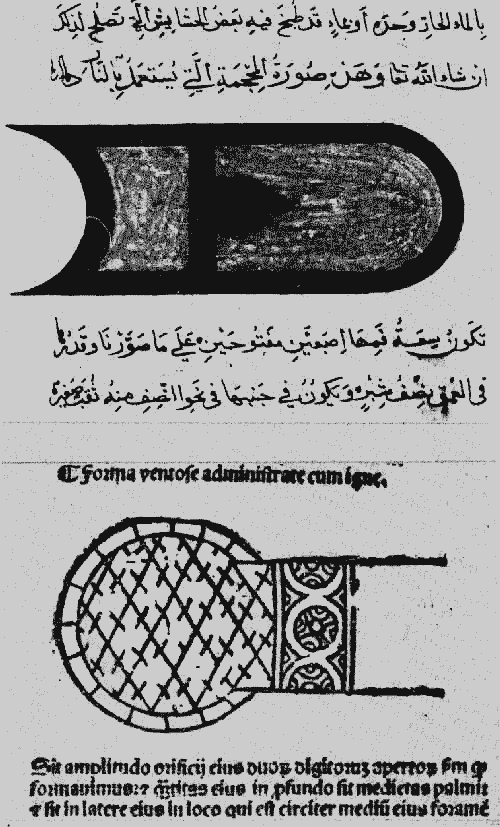 بالماء الحار وحده أو بماء قد طبخ فيه بعض الحشايش التي تصلح لذلك
ان شاء الله تعا وهذه صورة المحجمة التي تستعمل بالنار
تكون سعة فمها اصبعين مفتوحين على ما صورنا وقدرها
في العمق نصف شبر وتكون في جنبها في نحو النصف منه ثقب صغير
¶ Forma ventose administrate cum igne.
Sit amplitudo orificij eius duoꝝ digitoꝝ apertoꝝ ſm ꝙ
formauimus: ⁊ q̃titas eius in ꝓfundo sit medietas palmi:
⁊ sit in latere eius in loco qui est circiter mediū eius foramē